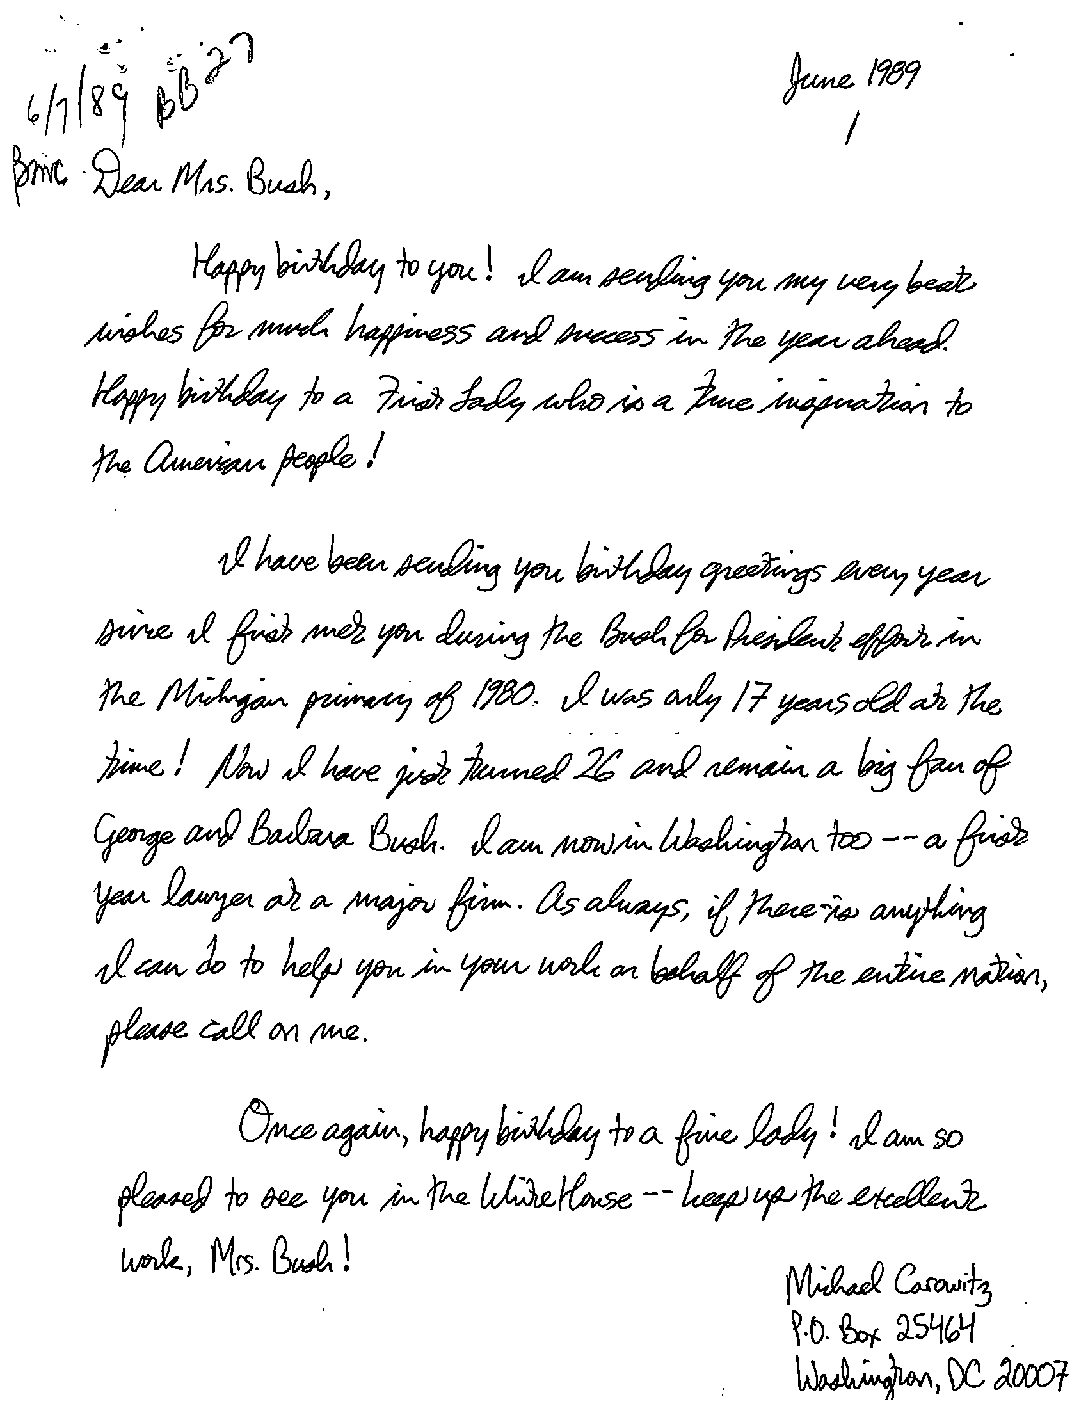 6/7/89 BB 27
June 1989
Dear Mrs. Bush,
Happy birthday to you! I am sending you my very best
wishes for much happiness and success in the year ahead.
Happy birthday to a First Lady who is a true inspiration to
the American people!
I have been sending you birthday greetings every year
since I first met you during the Bush for President effort in
the Michigan primary of 1980. I was only 17 years old at the
time! Now I have just turned 26 and remain a big fan of
George and Barbara Bush. I am now in Washington too -- a first
year lawyer at a major firm. As always, if there is anything
I can do to help you in your work on behalf of the entire nation,
please call on me.
Once again, happy birthday to a fine lady! I am so
pleased to see you in the White House -- keep up the excellent
work, Mrs. Bush!
Michael Carowitz
P.O. Box 25464
Washington, DC 20007